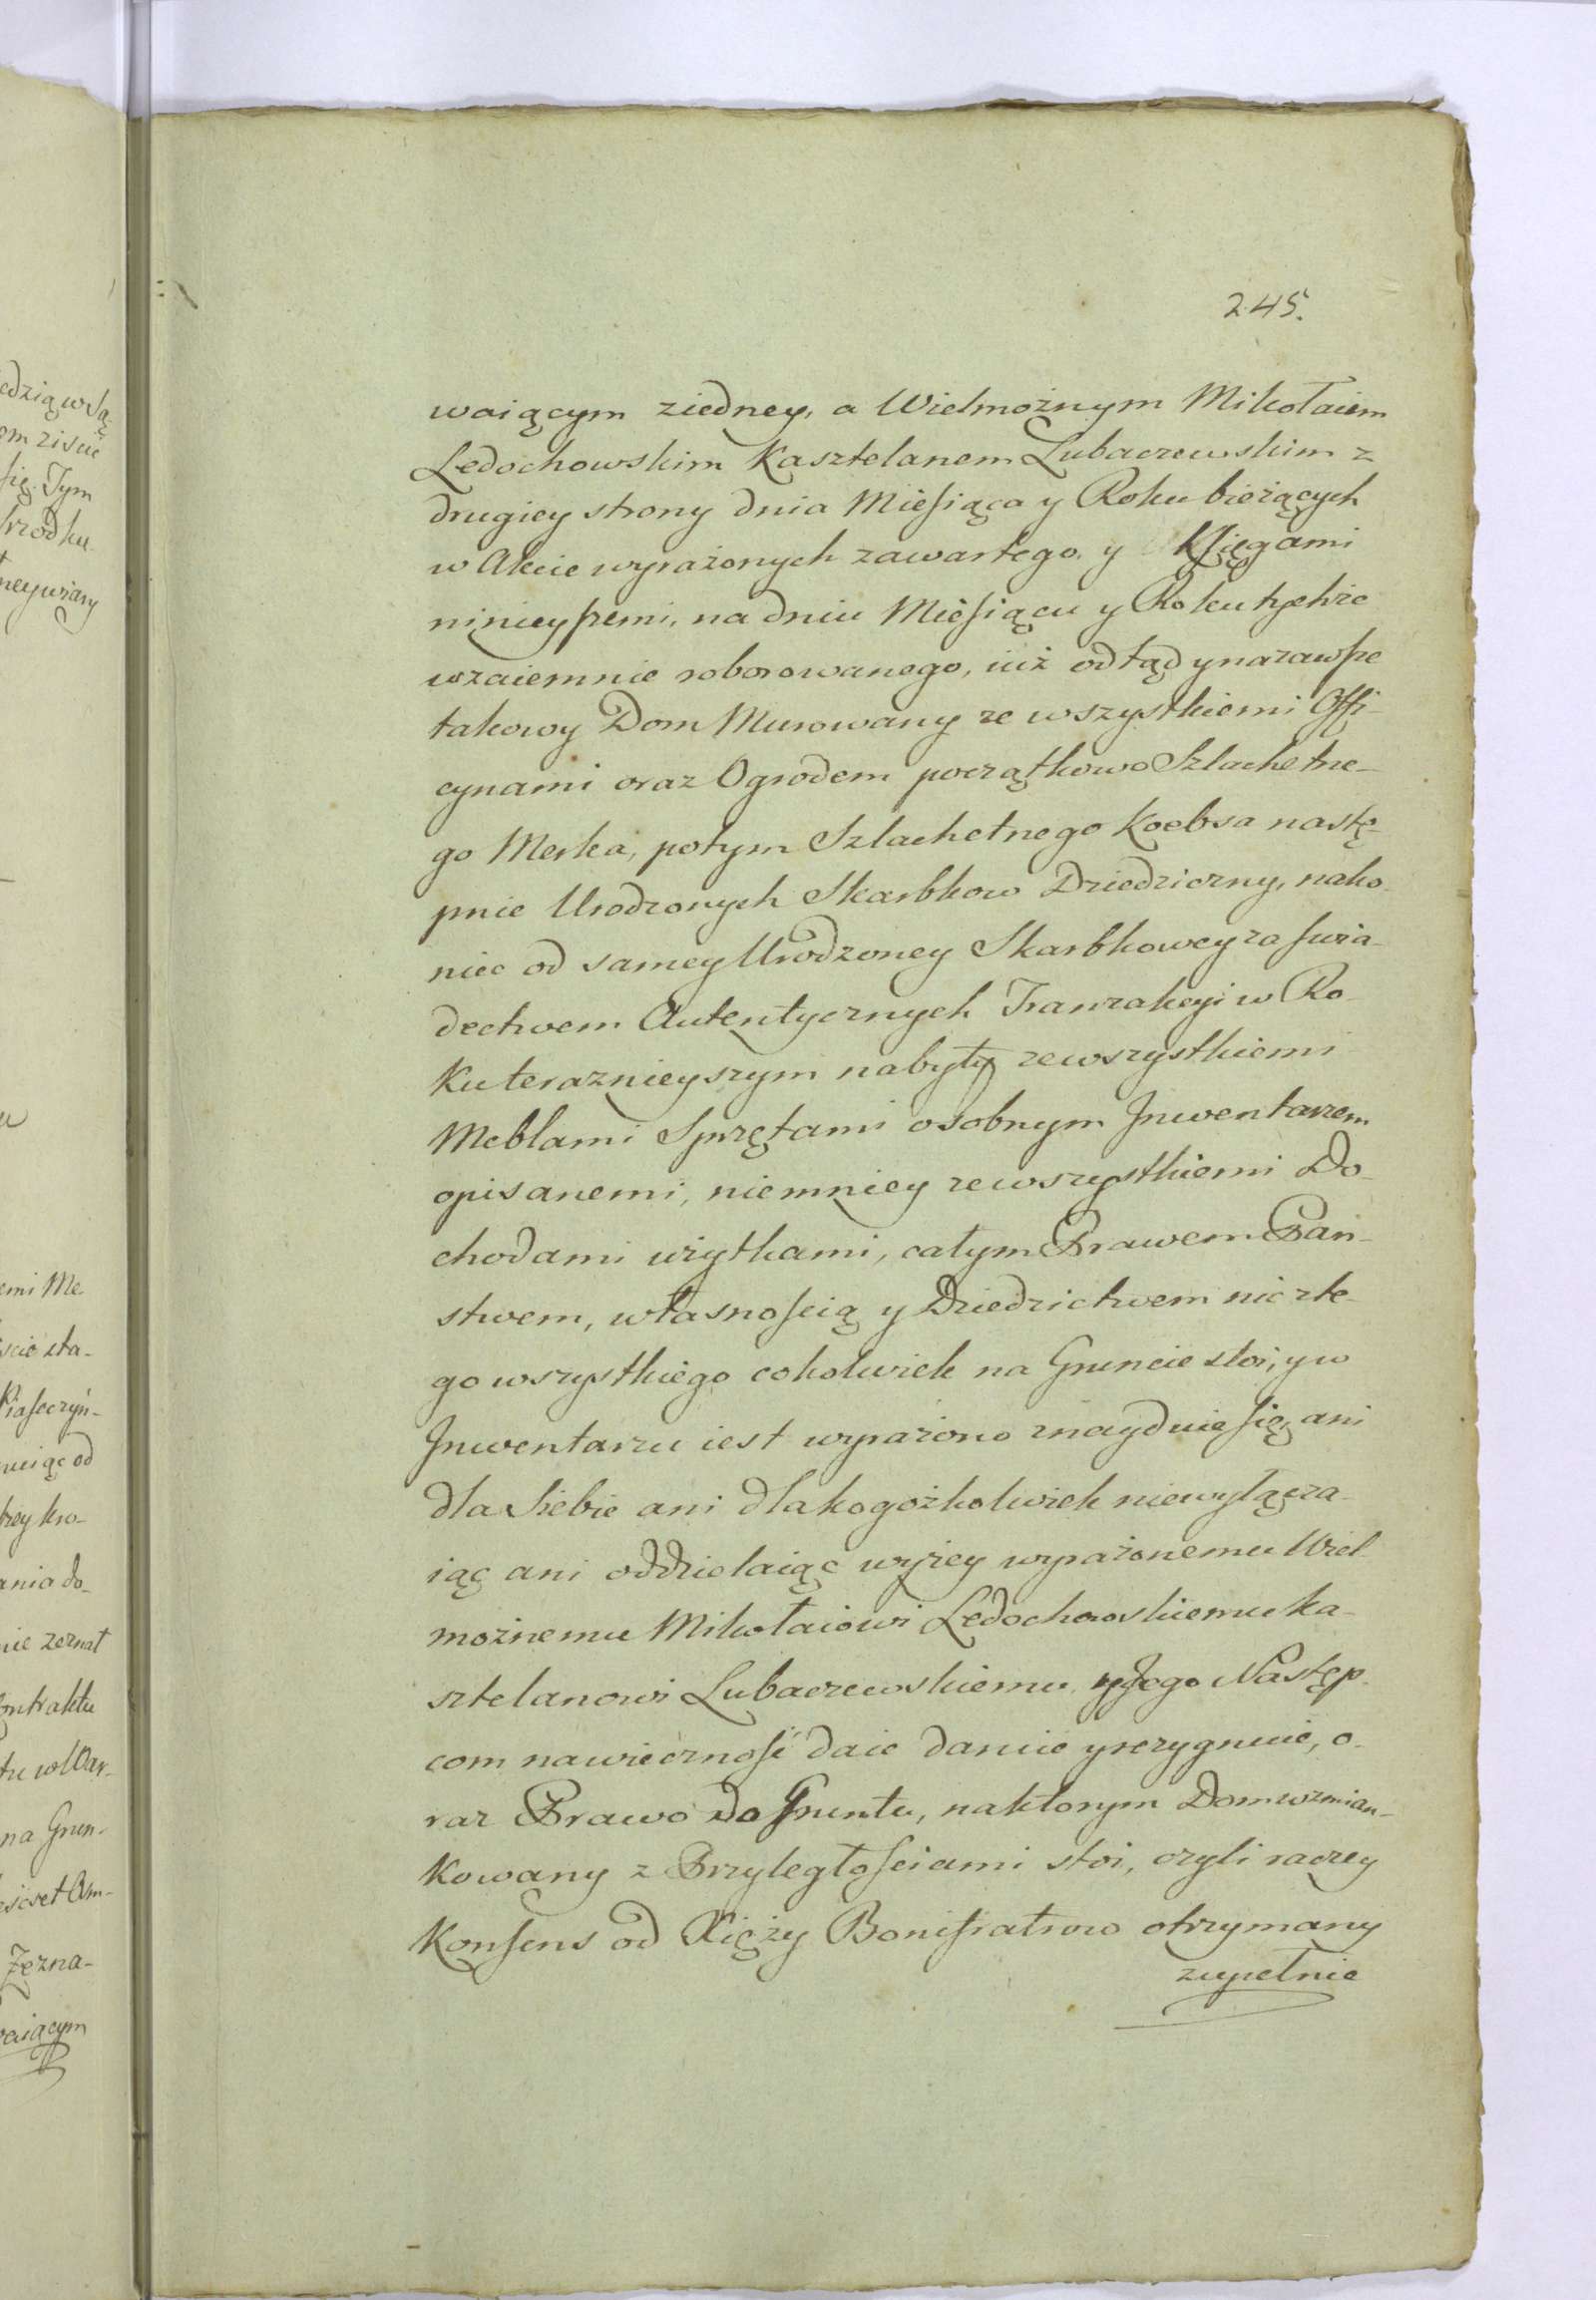 245.
waiącym ziedney, a Wielmożnym Mikołaiem
Ledochowskim Kasztelanem Lubaczewskim z
drugiey strony dnia Miesiąca y Roku bieżących
w Akcie wyrażonych zawartego, y Księgami
ninieyszemi, na dniu Miesiącu y Roku tychże
wzaiemnie roborowanego, iuż odtąd ynazawsze
takowy Dom Murowany ze wszystkiemi Offi-
cynami oraz Ogrodem początkowo Szlachetne-
go Merka, potym Szlachetnego Koebsa nastę-
pnie Urodzonych Skarbkow Dziedziczny, nako-
niec od samey Urodzoney Skarbkowey za swia-
dectwem Autentycznych Tranzakcyi w Ro-
ku teraznieyszym nabyty zewszystkiemi
Meblami Sprzętami osobnym Jnwentarzem
opisanemi, niemniey zewszystkiemi Do-
chodami użytkami, całym Prawem Pań-
stwem, własnością y Dziedzictwem nic zte-
go wszystkiego cokolwiek na Gruncie stoi, y w
Jnwentarzu iest wyrażono znayduie się ani
dla Siebie ani dla kogożkolwiek niewyłącza-
iąc ani oddzielaiąc wyżey wyrażonemu Wiel-
możnemu Mikołaiowi Ledochowskiemu Ka-
sztelanowi Lubaczewskiemu y Jego Następ-
com nawieczność daie daruie yrezygnuie, o-
raz Prawo do Gruntu, naktorym Dom wzmian-
kowany z Przyległościami stoi, czyli raczey
Konsens od Xięży Bonifratrow otrzymany
zupełnie